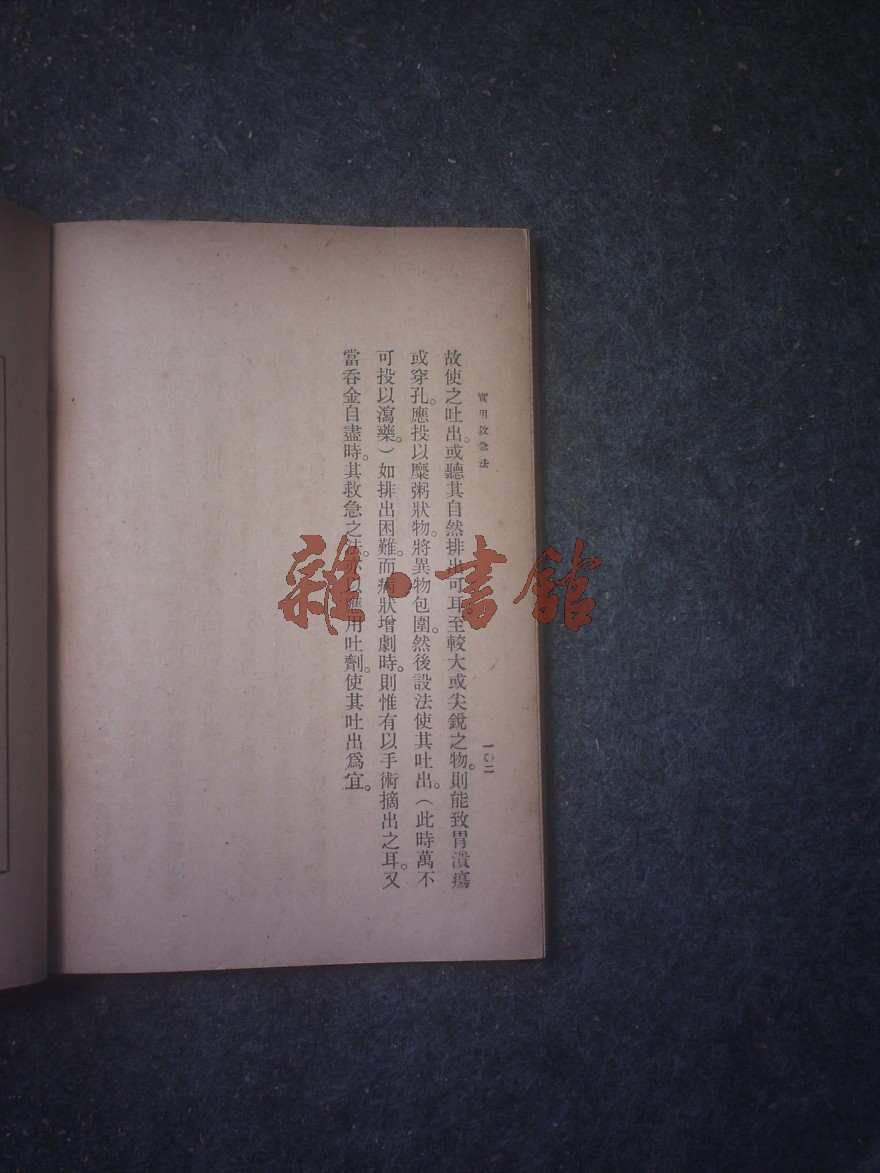 實用救急法
一〇二
故使之吐出。或聽其自然排出可耳至較大或尖銳之物。則能致胃潰瘍
或穿孔。應投以糜粥狀物。將異物包圍。然後設法使其吐出。（此時萬不
可投以瀉藥。）如排出困難。而病狀增劇時。則惟有以手術摘出之耳。又
當吞金自盡時。其救急之法。亦以應用吐劑。使其吐出爲宜。
雜·書館